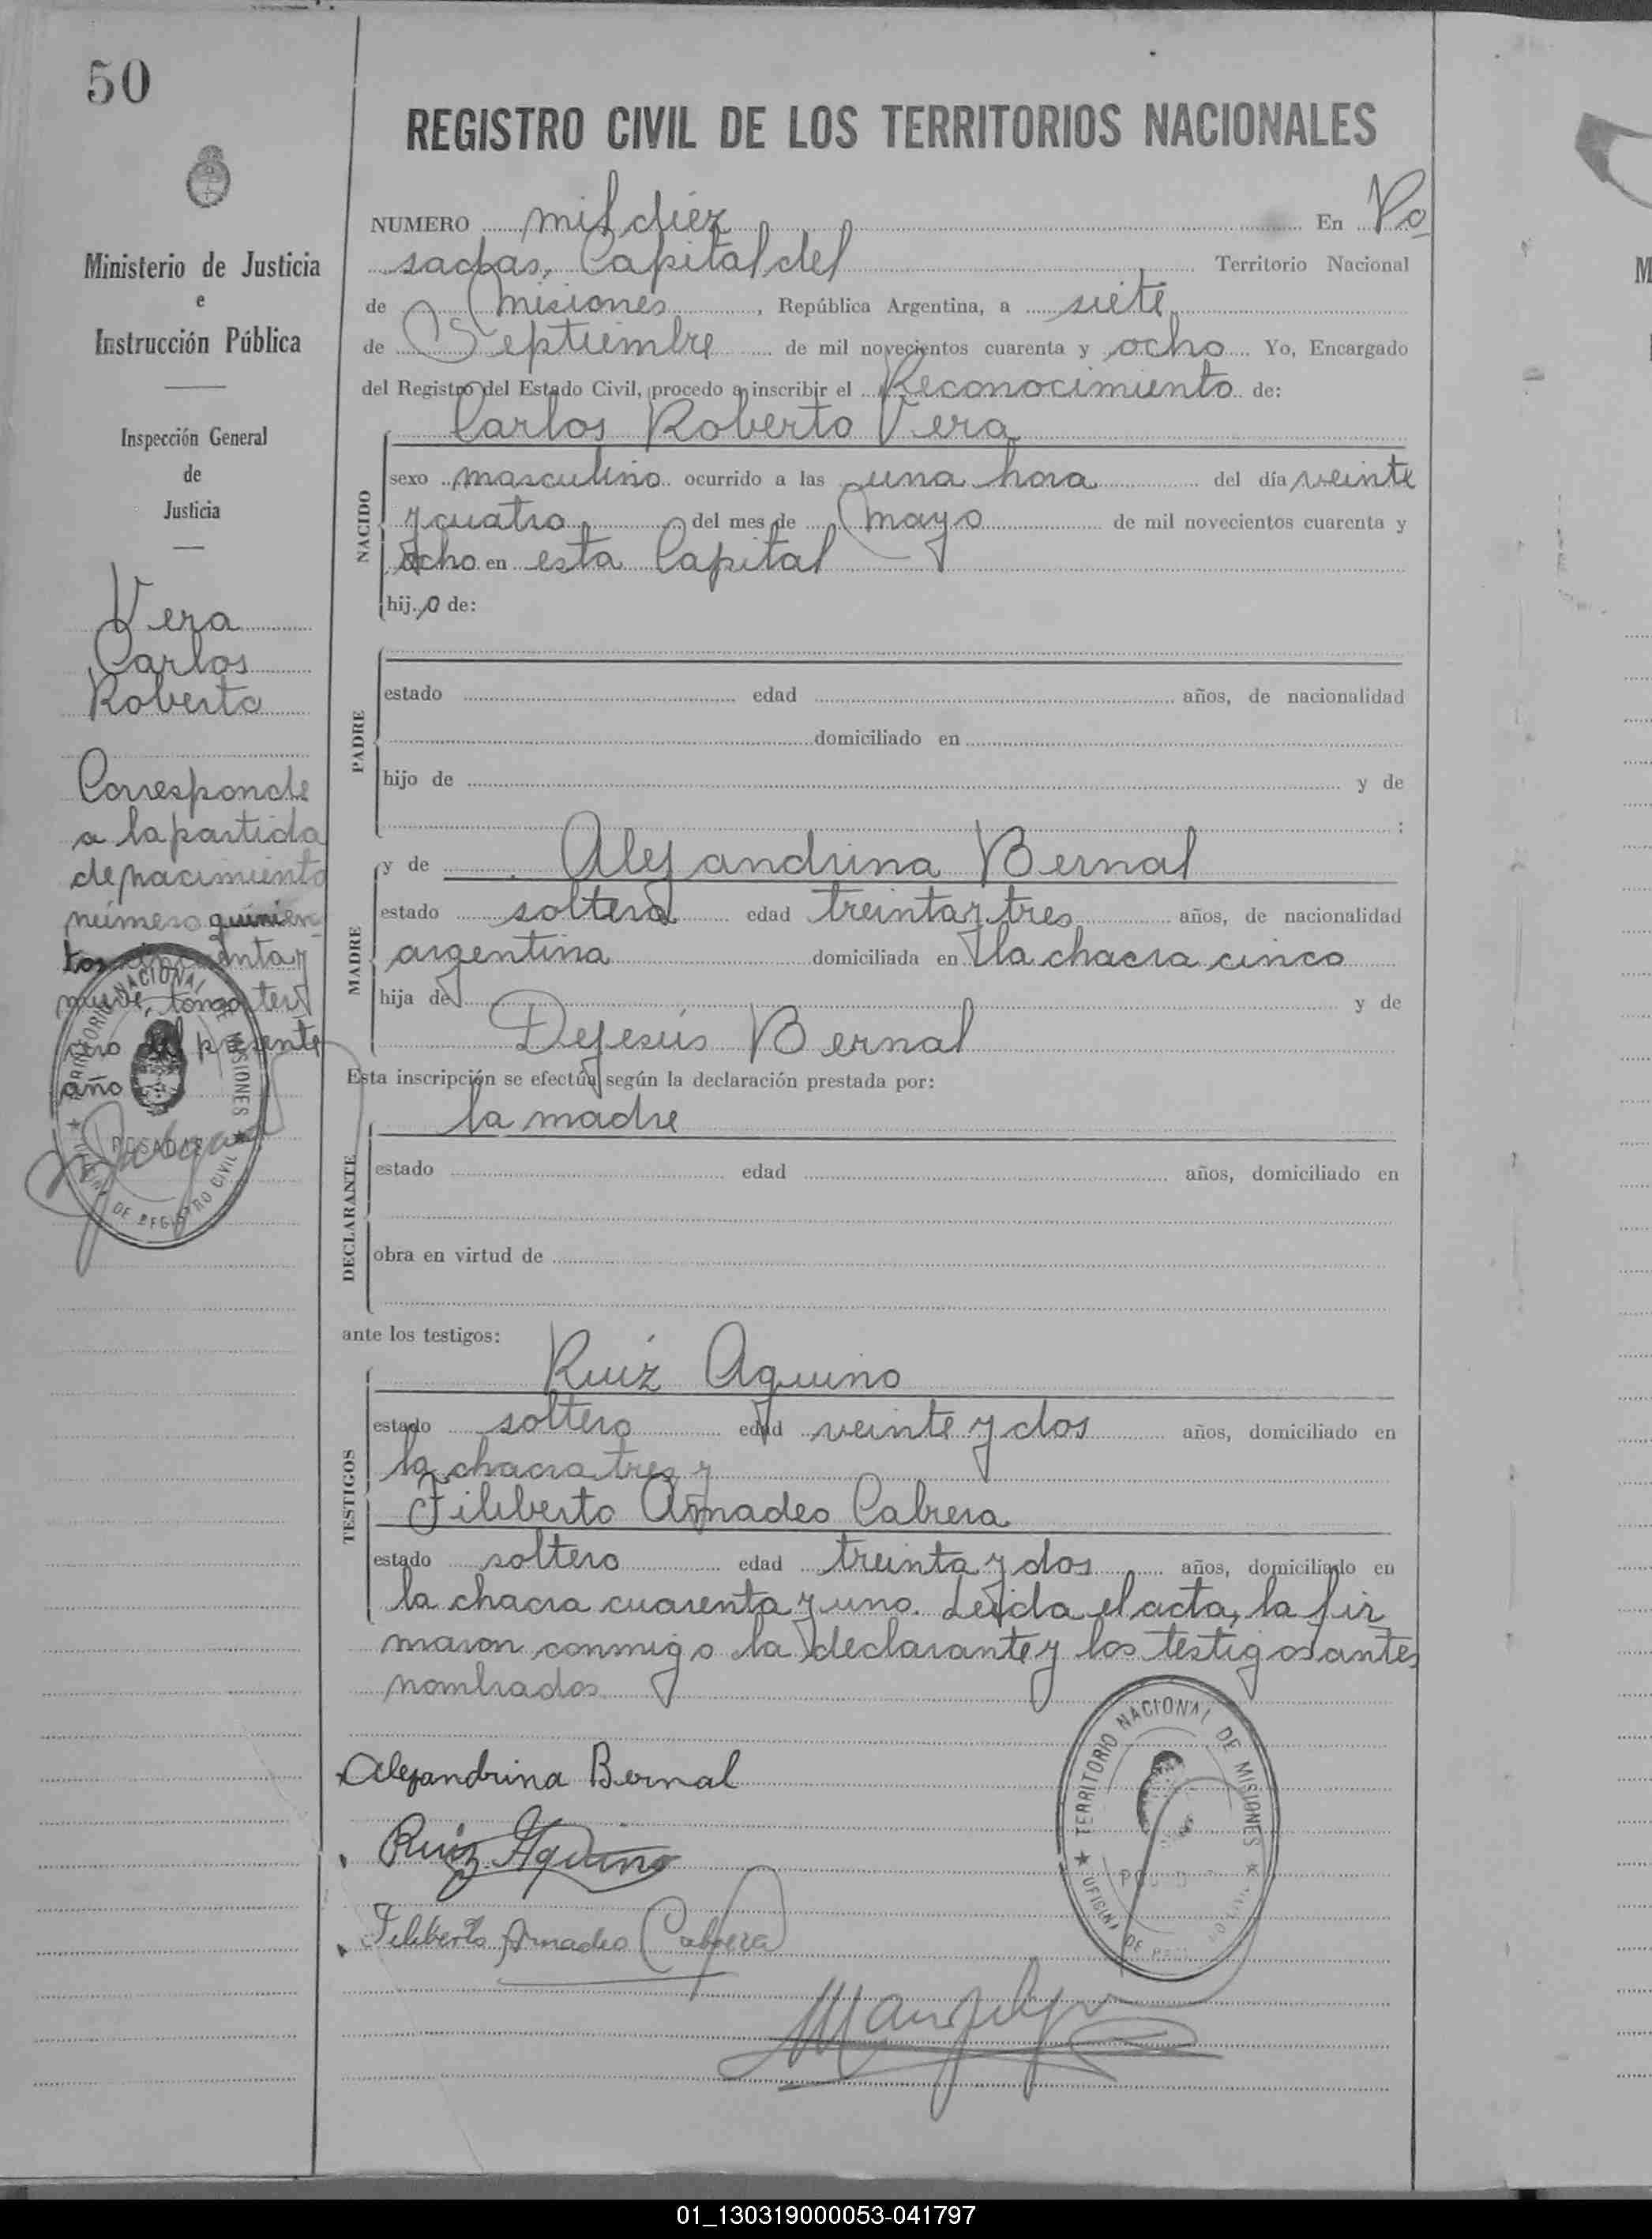 50
Ministerio de Justicia
e
Instrucción Pública
Inspección General
de
Justicia
Vera
Carlos
Roberto
Corresponde
a la partida
de nacimiento
número quinien
tos cincuenta y
nueve, tomo ter
cero del presente
año
TERRITORIO NACIONAL DE MISIONES
POSADAS
OFICINA DE REGISTRO CIVIL
REGISTRO CIVIL DE LOS TERRITORIOS NACIONALES
NUMERO mil diez En Po
sadas, Capital del Territorio Nacional
de Misiones, República Argentina, a siete
de Septiembre de mil novecientos cuarenta y ocho Yo, Encargado
del Registro del Estado Civil, procedo a inscribir el Reconocimiento de:
Carlos Roberto Vera
NACIDO
sexo masculino ocurrido a las una hora del día veinte
y cuatro del mes de Mayo de mil novecientos cuarenta y
ocho en esta Capital
hijo de:
PADRE
estado edad años, de nacionalidad
domiciliado en
hijo de y de
:
MADRE
y de Alejandrina Bernal
estado soltera edad treinta y tres años, de nacionalidad
argentina domiciliada en la chacra cinco
hija de y de
Dejesús Bernal
Esta inscripción se efectúa según la declaración prestada por:
la madre
DECLARANTE
estado edad años, domiciliado en
obra en virtud de
ante los testigos:
Ruiz Aquino
TESTIGOS
estado soltero edad veinte y dos años, domiciliado en
la chacra tres y
Filiberto Amadeo Cabrera
estado soltero edad treinta y dos años, domiciliado en
la chacra cuarenta y uno. Leída el acta, la fir
maron conmigo la declarante y los testigos antes
nombrados
Alejandrina Bernal
Ruiz Aquino
Filiberto Amadeo Cabrera
TERRITORIO NACIONAL DE MISIONES
OFICINA DE
01_130319000053-041797